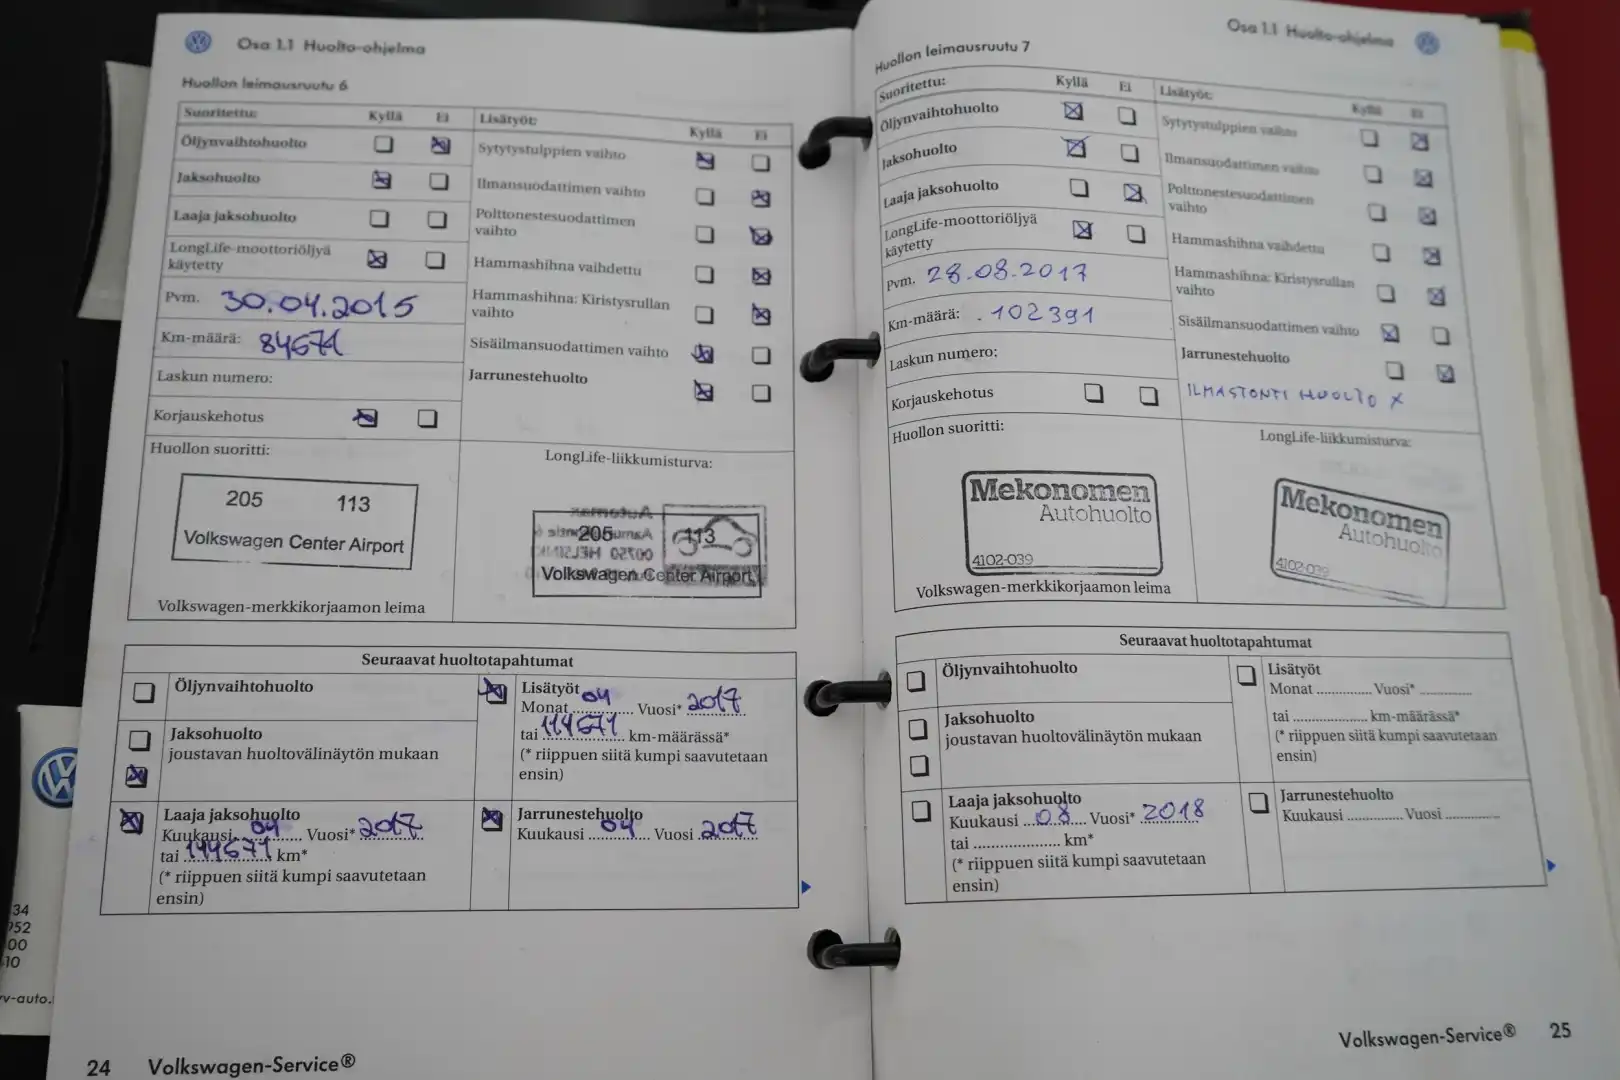 Osa 1.1 Huolto-ohjelma
Huollon leimausruutu 6
Suoritettu: Kyllä Ei
Öljynvaihtohuolto
Jaksohuolto
Laaja jaksohuolto
LongLife-moottoriöljyä
käytetty
Pvm. 30.04.2015
Km-määrä: 84671
Laskun numero:
Korjauskehotus
Lisätyöt: Kyllä Ei
Sytytystulppien vaihto
Ilmansuodattimen vaihto
Polttonestesuodattimen
vaihto
Hammashihna vaihdettu
Hammashihna: Kiristysrullan
vaihto
Sisäilmansuodattimen vaihto
Jarrunestehuolto
Huollon suoritti:
205 113
Volkswagen Center Airport
Volkswagen-merkkikorjaamon leima
LongLife-liikkumisturva:
205 113
Volkswagen Center Airport
Seuraavat huoltotapahtumat
Öljynvaihtohuolto
Jaksohuolto
joustavan huoltovälinäytön mukaan
Laaja jaksohuolto
Kuukausi 04 Vuosi* 2017
tai 114671 km*
(* riippuen siitä kumpi saavutetaan
ensin)
Lisätyöt
Monat 04 Vuosi* 2017
tai 114671 km-määrässä*
(* riippuen siitä kumpi saavutetaan
ensin)
Jarrunestehuolto
Kuukausi 04 Vuosi 2017
24 Volkswagen-Service®
Osa 1.1 Huolto-ohjelma
Huollon leimausruutu 7
Suoritettu: Kyllä Ei
Öljynvaihtohuolto
Jaksohuolto
Laaja jaksohuolto
LongLife-moottoriöljyä
käytetty
Pvm. 28.08.2017
Km-määrä: .102391
Laskun numero:
Korjauskehotus
Lisätyöt: Kyllä Ei
Sytytystulppien vaihto
Ilmansuodattimen vaihto
Polttonestesuodattimen
vaihto
Hammashihna vaihdettu
Hammashihna: Kiristysrullan
vaihto
Sisäilmansuodattimen vaihto
Jarrunestehuolto
ILMASTONTI HUOLTO X
Huollon suoritti:
Mekonomen
Autohuolto
4102-039
Volkswagen-merkkikorjaamon leima
LongLife-liikkumisturva:
Mekonomen
Autohuolto
4102-039
Seuraavat huoltotapahtumat
Öljynvaihtohuolto
Jaksohuolto
joustavan huoltovälinäytön mukaan
Laaja jaksohuolto
Kuukausi 08 Vuosi* 2018
tai .................... km*
(* riippuen siitä kumpi saavutetaan
ensin)
Lisätyöt
Monat .............. Vuosi* .............
tai ................... km-määrässä*
(* riippuen siitä kumpi saavutetaan
ensin)
Jarrunestehuolto
Kuukausi .............. Vuosi .............
Volkswagen-Service® 25
34
952
00
10